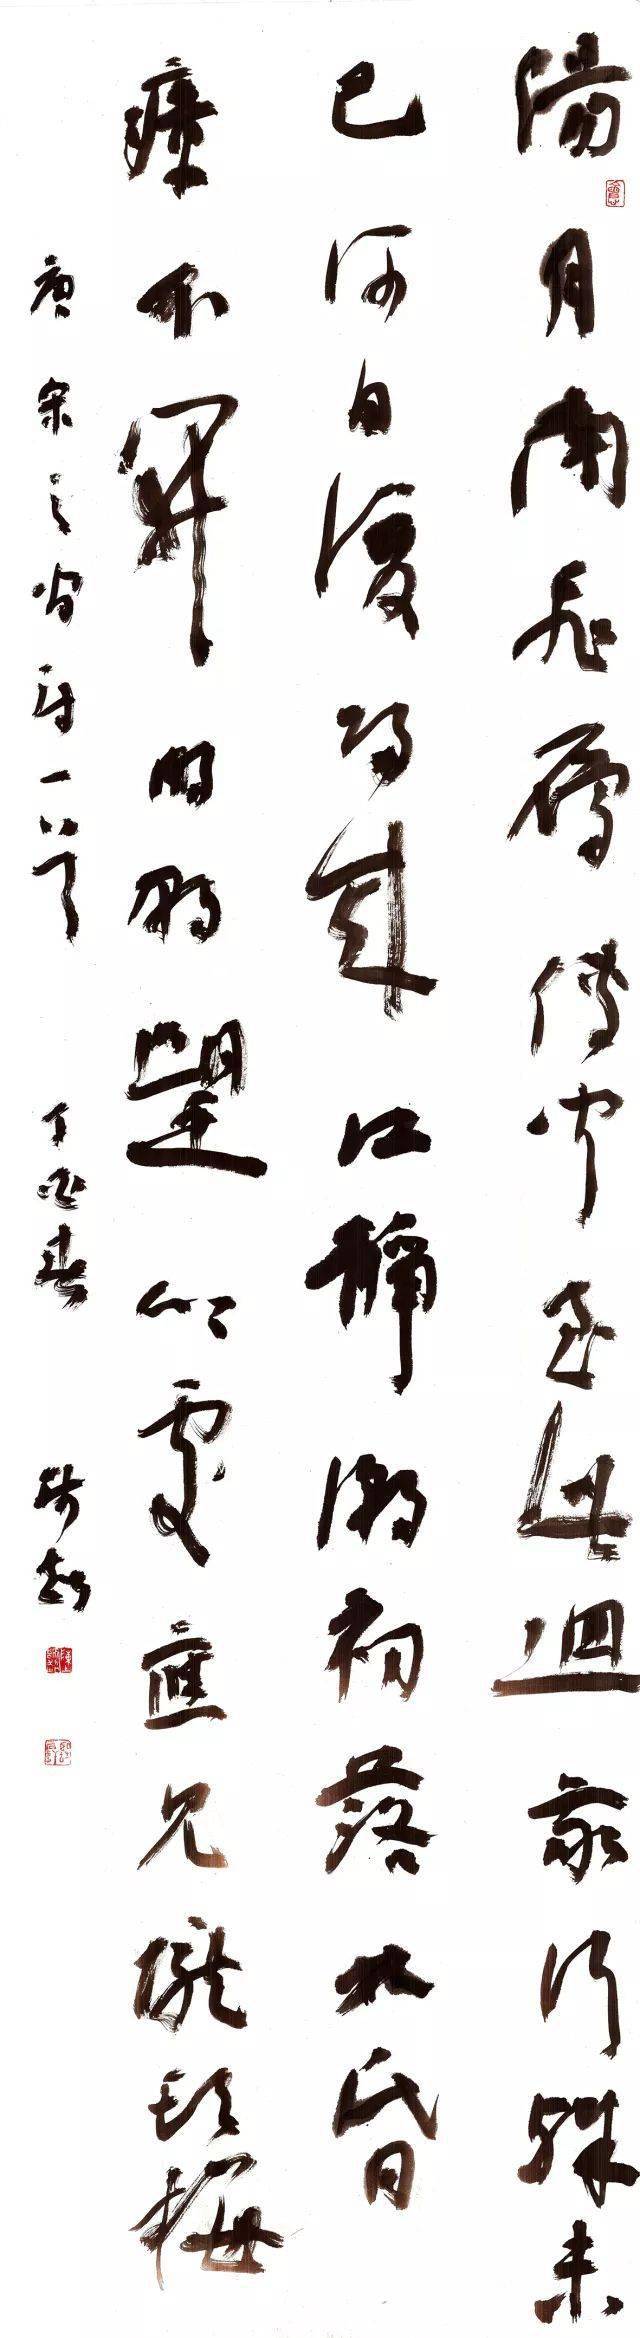 陽月南飛鴈傳聞至此迴我行殊未
已何日復歸來江靜潮初落林昏
瘴不開明朝望鄉處應見隴頭梅
唐宋之問詩一首 丁酉春